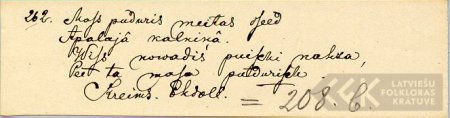 262. Mass puduris meitas dseed
Apalajâ kalninâ.
Wiss nowadis puischi nahza,
Pee ta masa pudurischa
Kreims. Ekdoll.
= 208. C.
LATVIEŠU
FOLKLORAS
KRĀTUVE